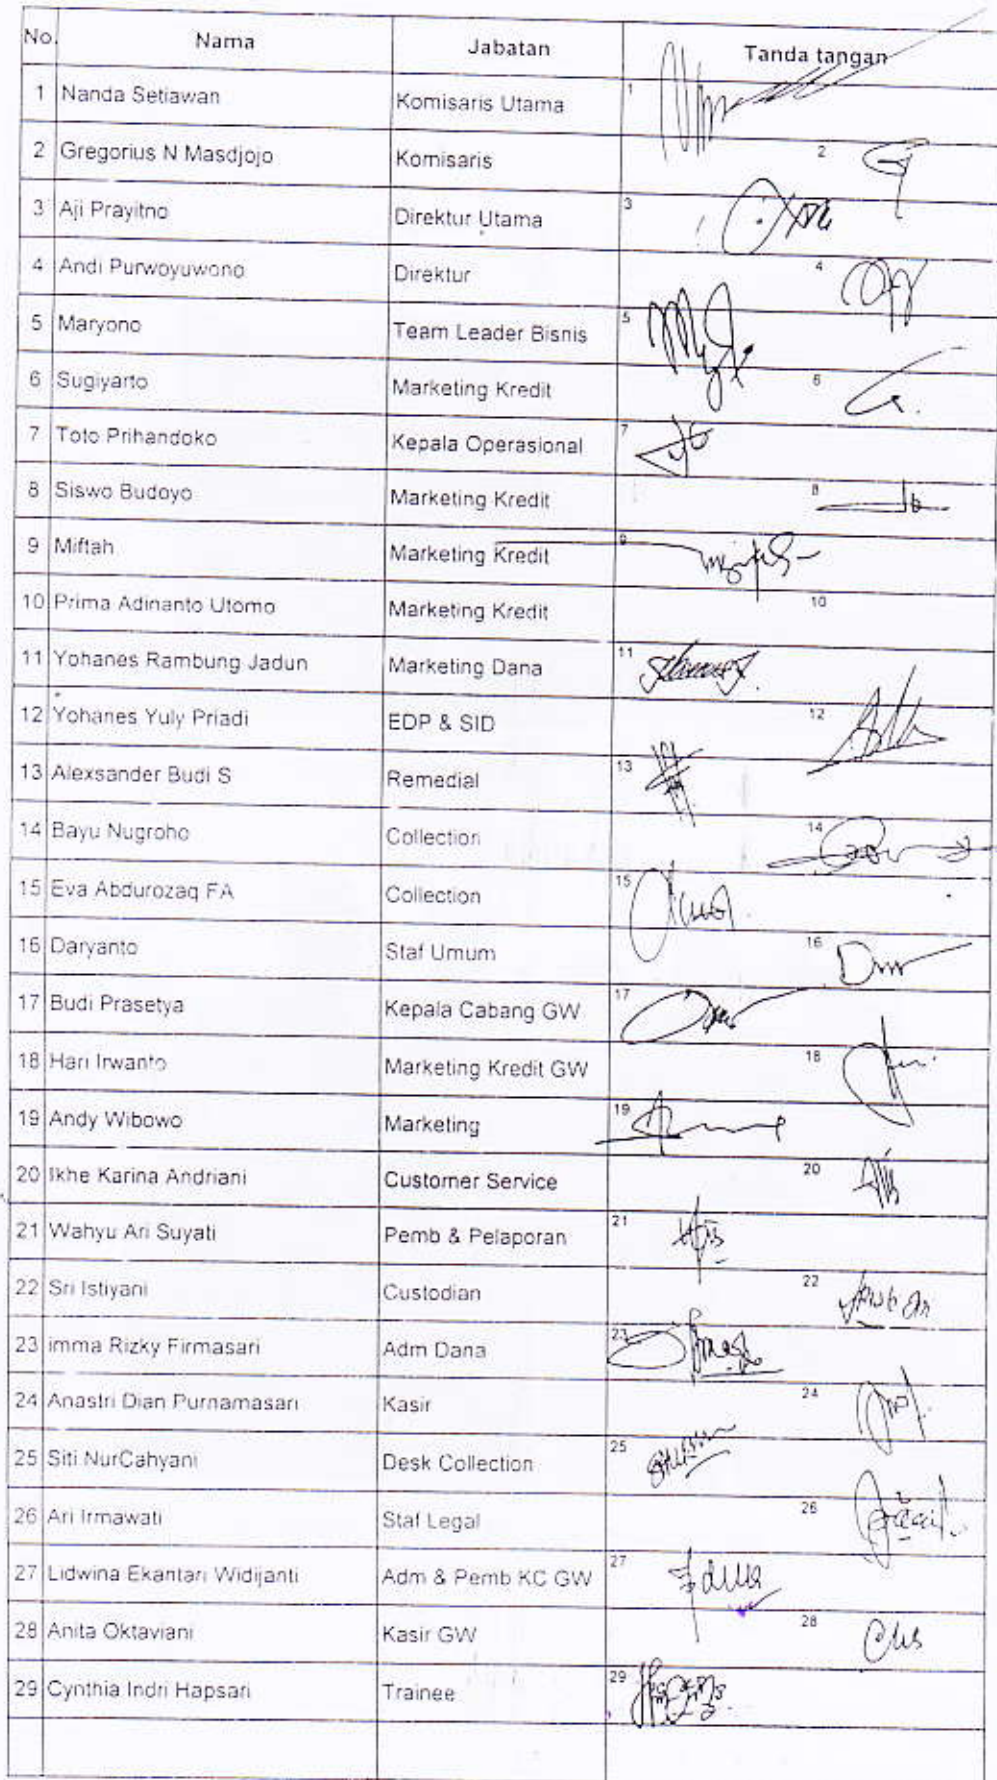 No. Nama Jabatan Tanda tangan
1 Nanda Setiawan Komisaris Utama 1
2 Gregorius N Masdjojo Komisaris 2
3 Aji Prayitno Direktur Utama 3
4 Andi Purwoyuwono Direktur 4
5 Maryono Team Leader Bisnis 5
6 Sugiyarto Marketing Kredit 6
7 Toto Prihandoko Kepala Operasional 7
8 Siswo Budoyo Marketing Kredit 8
9 Miftah Marketing Kredit 9
10 Prima Adinanto Utomo Marketing Kredit 10
11 Yohanes Rambung Jadun Marketing Dana 11
12 Yohanes Yuly Priadi EDP & SID 12
13 Alexsander Budi S Remedial 13
14 Bayu Nugroho Collection 14
15 Eva Abdurozaq FA Collection 15
16 Daryanto Staf Umum 16
17 Budi Prasetya Kepala Cabang GW 17
18 Hari Irwanto Marketing Kredit GW 18
19 Andy Wibowo Marketing 19
20 Ikhe Karina Andriani Customer Service 20
21 Wahyu Ari Suyati Pemb & Pelaporan 21
22 Sri Istiyani Custodian 22
23 imma Rizky Firmasari Adm Dana 23
24 Anastri Dian Purnamasari Kasir 24
25 Siti NurCahyani Desk Collection 25
26 Ari Irmawati Staf Legal 26
27 Lidwina Ekantari Widijanti Adm & Pemb KC GW 27
28 Anita Oktaviani Kasir GW 28
29 Cynthia Indri Hapsari Trainee 29